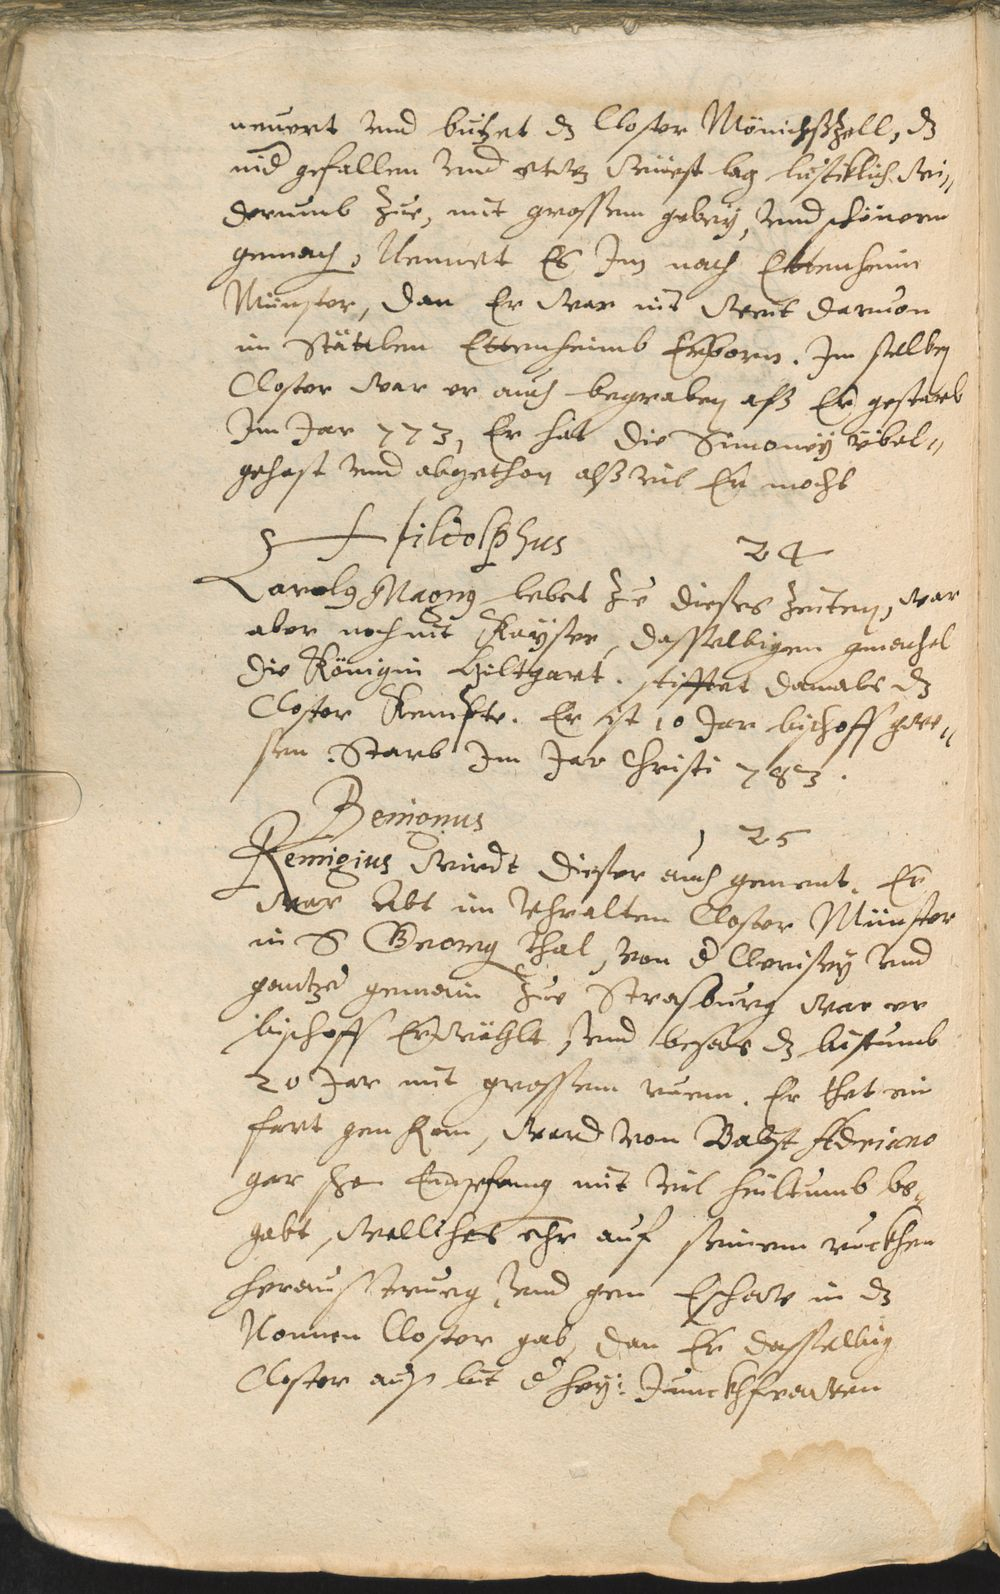 neuert vnd butzet dz Closter Mönichßzell, dz
nid gefallen vnd etwz wüest lag lustiklich wi„
derumb zue, mit grossem gebey, vnd schönem
gemach, Nennet Es Im nach Ettenheim
Münster, dan Er war nit weit daruon
im Stättlen Ettenheimb Erborn. Im selben
Closter war er auch begraben alß Er gestarb
Im Jar 773, Er hat die Simoneÿ übel„
gehast vnd abgethon alß vil Er mocht
Hildolphus 24
Carolg Magng lebet zu dieser Zeiten, war
aber noch nit Kaÿser, dasselbigen gmachel
die Königin Hiltgart. stifftet damals dz
Closter Kempte. Er ist 10 Jar bischoff gwe„
sen. Starb Im Jar Christi 783.
Remigius 25
Remigius wirdt dieser auch genent. Er
war Abt im Vhralten Closter Münster
in S Georg Thal, von d Clerisey vnd
gantzer gemain zue Strasburg war er
bischoff Erwöhlt, vnd besas dz bistumb
20 Jar mit grossem ruem. Er thet ein
fart gen Rom, ward von Babst Adriano
gar Empfang mit vil heiltumb be„
gabt, welliches ehr auf seinem ruckhen
heraus trueg, vnd gen Eschaw in dz
Nonnen Closter gab, dan Er dasselbig
Closter auß d hey: Junckhfrawen